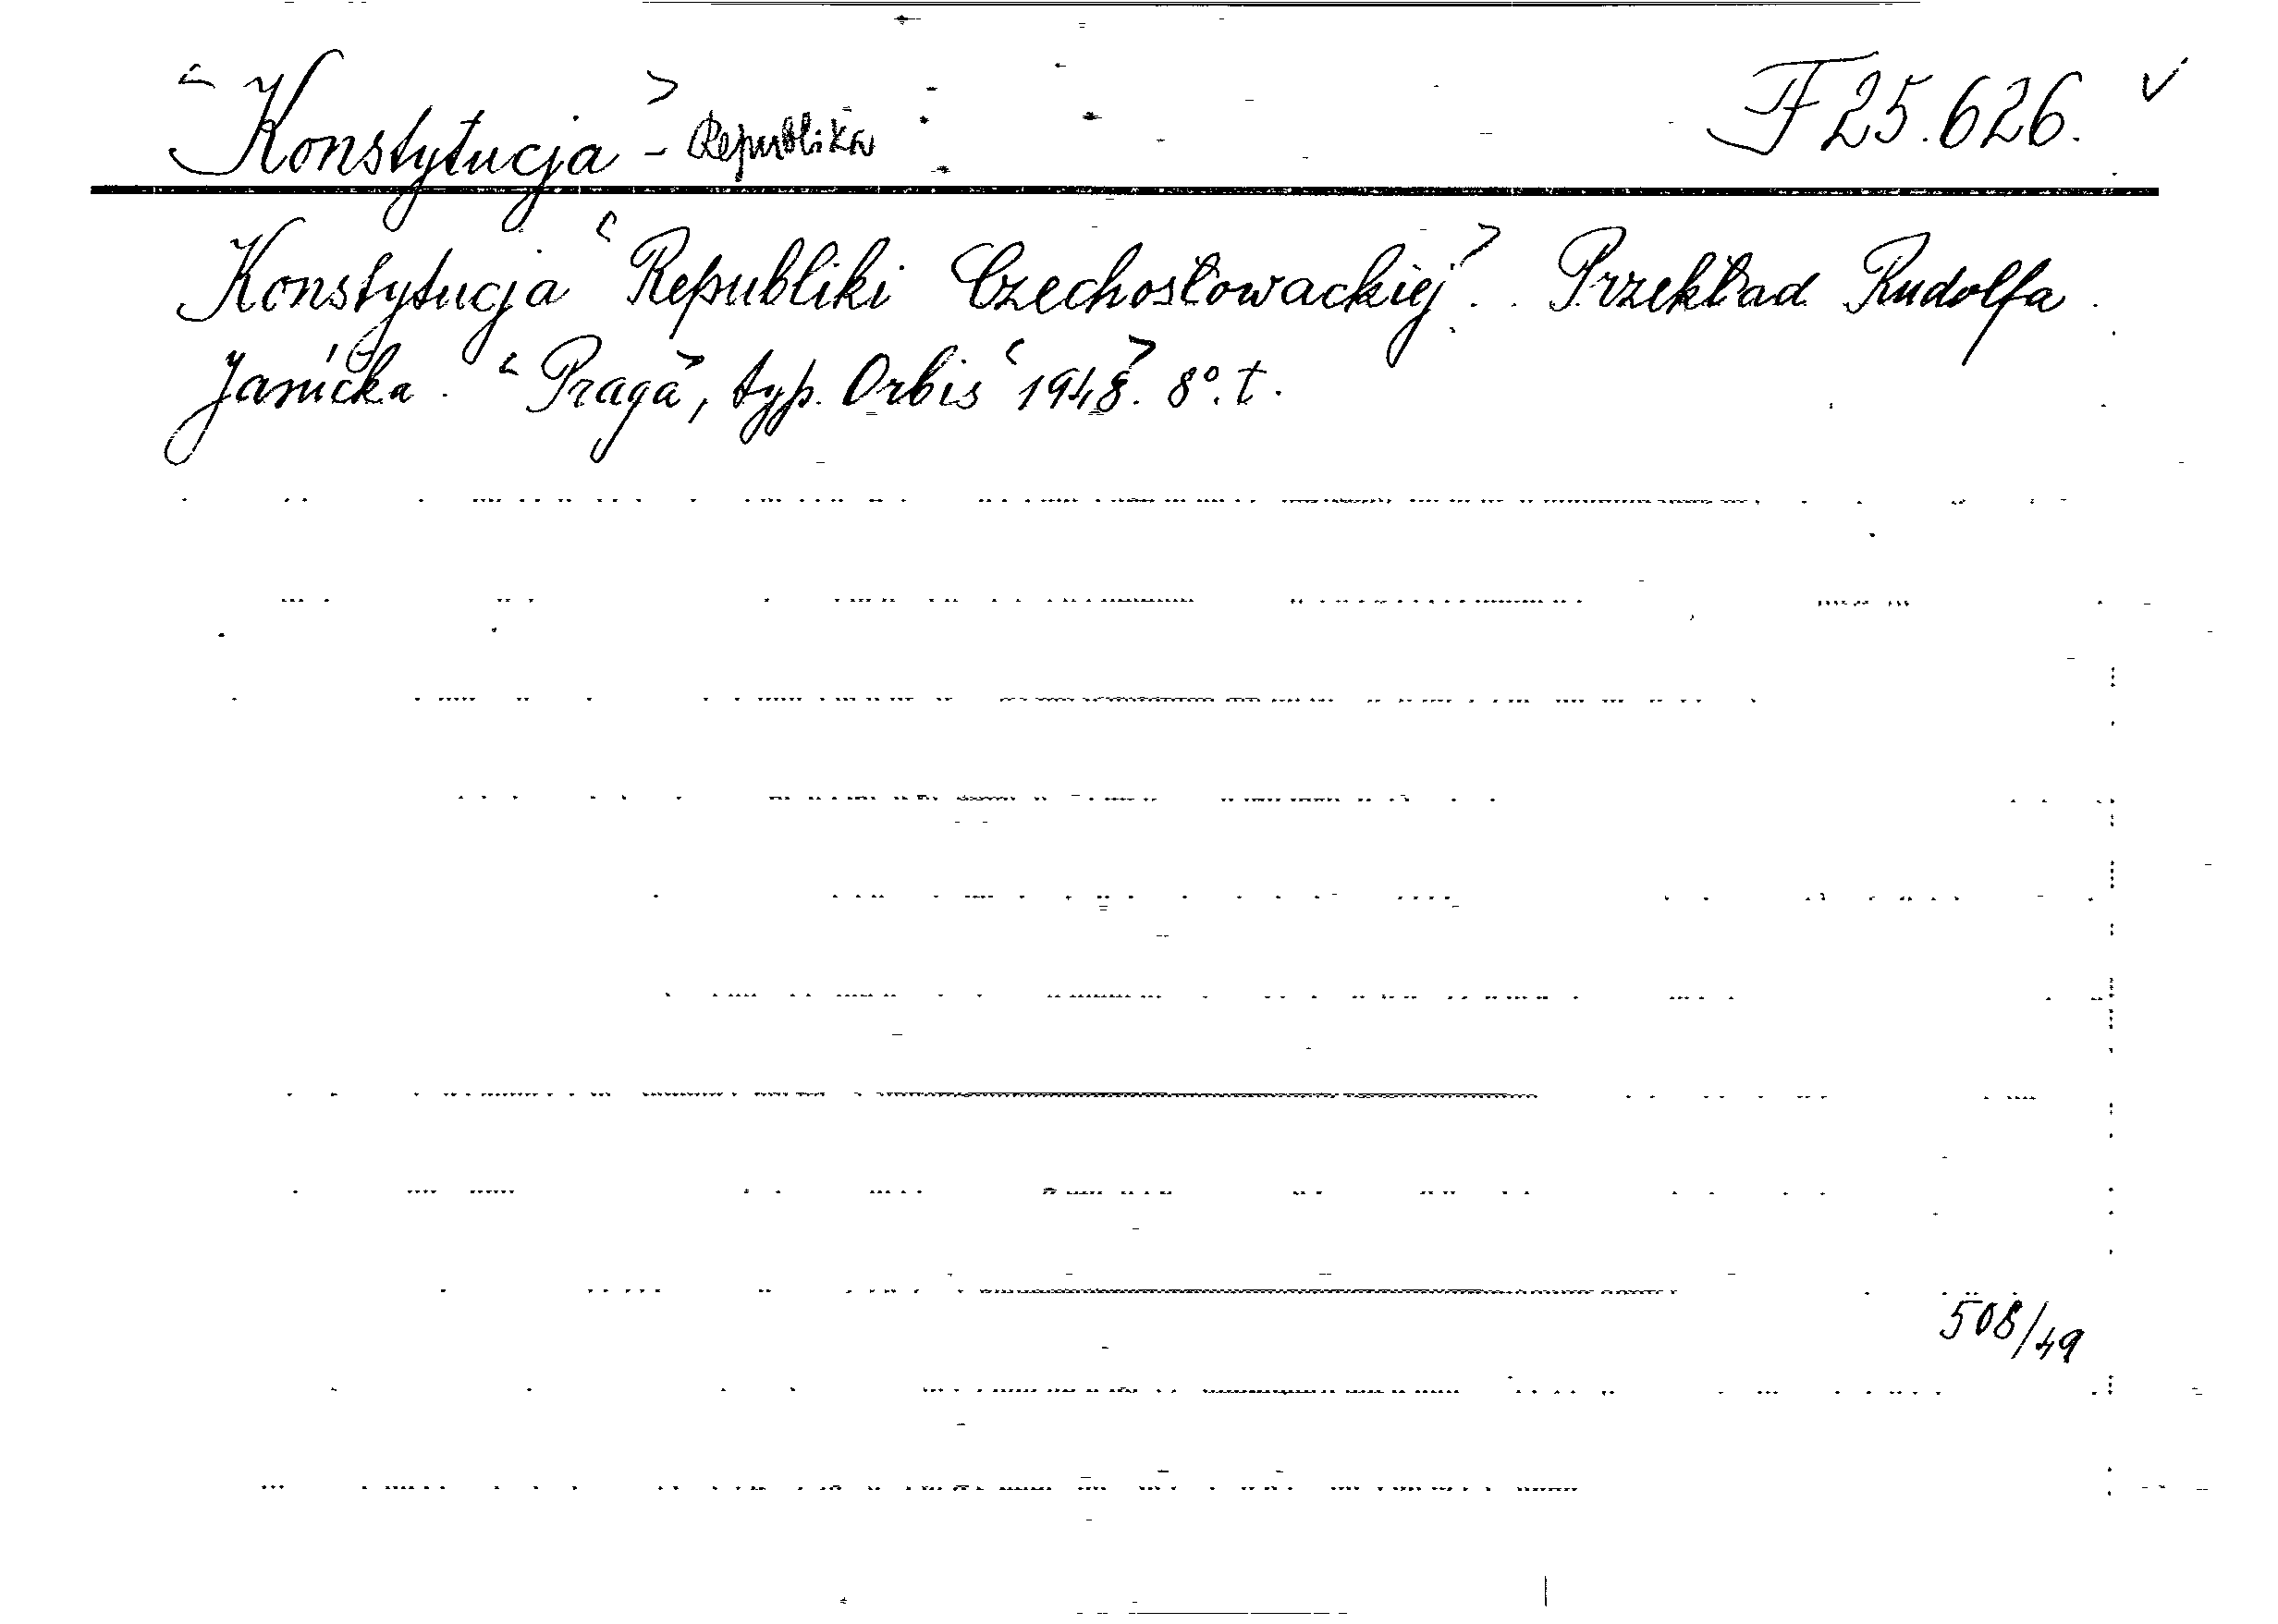 < Konstytucja > - Republika F 25.626. ✓
Konstytucja < Republiki Czechosłowackiej >. Przekład Rudolfa
Janíčka. < Praga >, typ. Orbis < 1948 >. 8°. t.
508/49